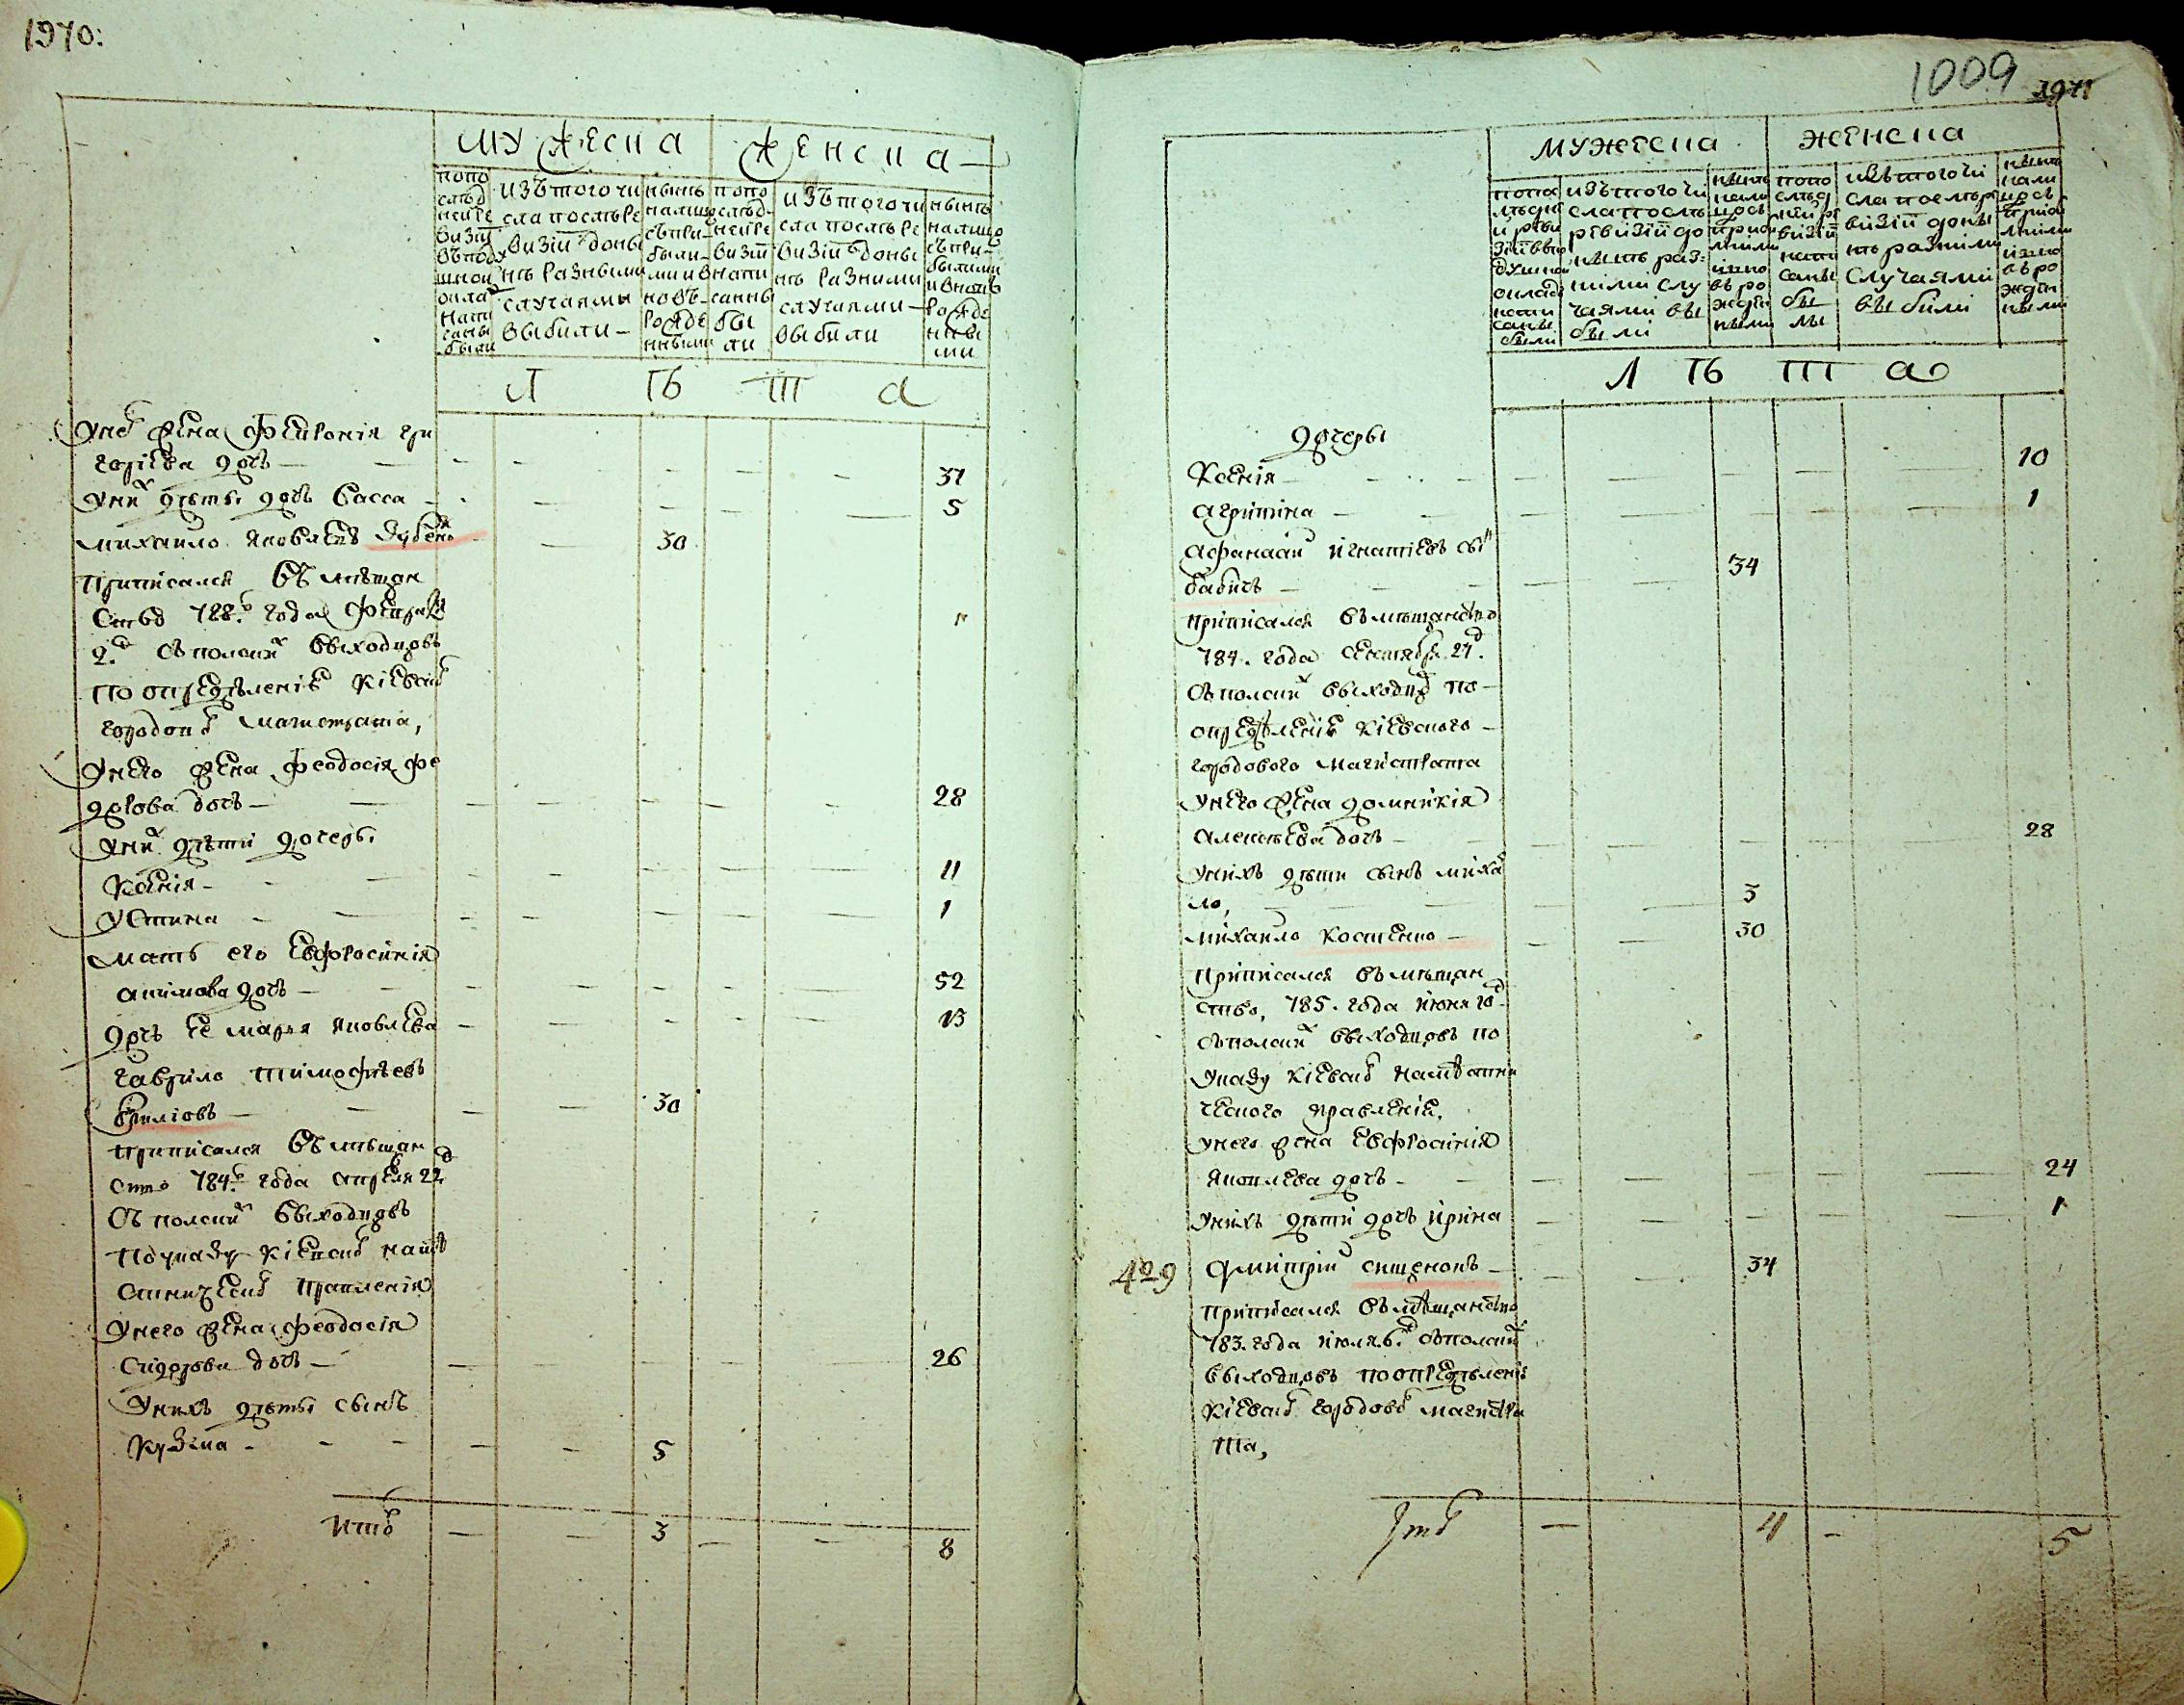 1970:
мужеска женска
попо следней ревизіи въ подушной окладъ написаны были
изъ того числа после ревизіи до ныне разными случаями выбыли
ныне на лицо съ прибылыми и вновь рожденными
попо следней ревизіи написаны были
изъ того числа после ревизіи до ныне разными случаями выбыли
ныне на лицо съ прибылыми и вновь рожденными
Л ѣ т а
У него жена Феврония гри
горіева дочь — 31
у них дѣти дочь Васса — 5
михаило яковлевъ дубенко 30
приписался въ мѣщан
ство 788го года февраля
2д съ полских выходцовъ
по определенію кіевског
городоваг магистрата,
у него жена феодосія фе
дорова дочь — 28
у них дѣти дочери
Ксенія — 11
устина — 1
мать его Евфросинія
акимова дочь — 52
дочь ее марья яковлева — 13
гаврило тимофѣевъ
30
приписался въ мѣщан
ство 784го года апреля 22д
съ полских выходцовъ
по указу кіевског намѣ
стническог правленія
у него жена феодосія
сидорова дочь — 26
у нихъ дѣти сынъ
кузма — 5
итог — — 3 — — 8
1009 1971
мужеска женска
попо следней ревизіи въ подушной окладъ написаны были
изъ того числа после ревизіи до ныне разными случаями выбыли
ныне на лицо съ прибылыми и вново рожденными
попо следней ревизіи написаны были
изъ того числа после ревизіи до ныне разними случаями выбыли
ныне на лицо съ прибылыми и вново рожденными
Л ѣ т а
дочеры
Ксенія — 10
агрипина — 1
афанасий игнатіевъ сын
бабичъ — 34
приписался въ мѣщанство
784. года сентября 27.д
съ полских выходцов по —
определенію кіевского —
городового магистрата
у него жена домникія
алексѣева дочь — 28
у нихъ дѣти сынъ миха
ло, 3
михаило костенко — 30
приписался въ мѣщан
ство, 785. года июня 10д
съ полских выходцовъ по
указу кіевског намѣстни
ческого правленія,
у него жена Евфросинія
яковлева дочь — 24
у нихъ дѣти дочь ирина — 1
409 дмитрий — 34
приписался въ мѣщанство
783. года июля 6.д съ полских
выходцовъ по определенію
кіевског городовог магистра
та,
Итог — 4 — 5